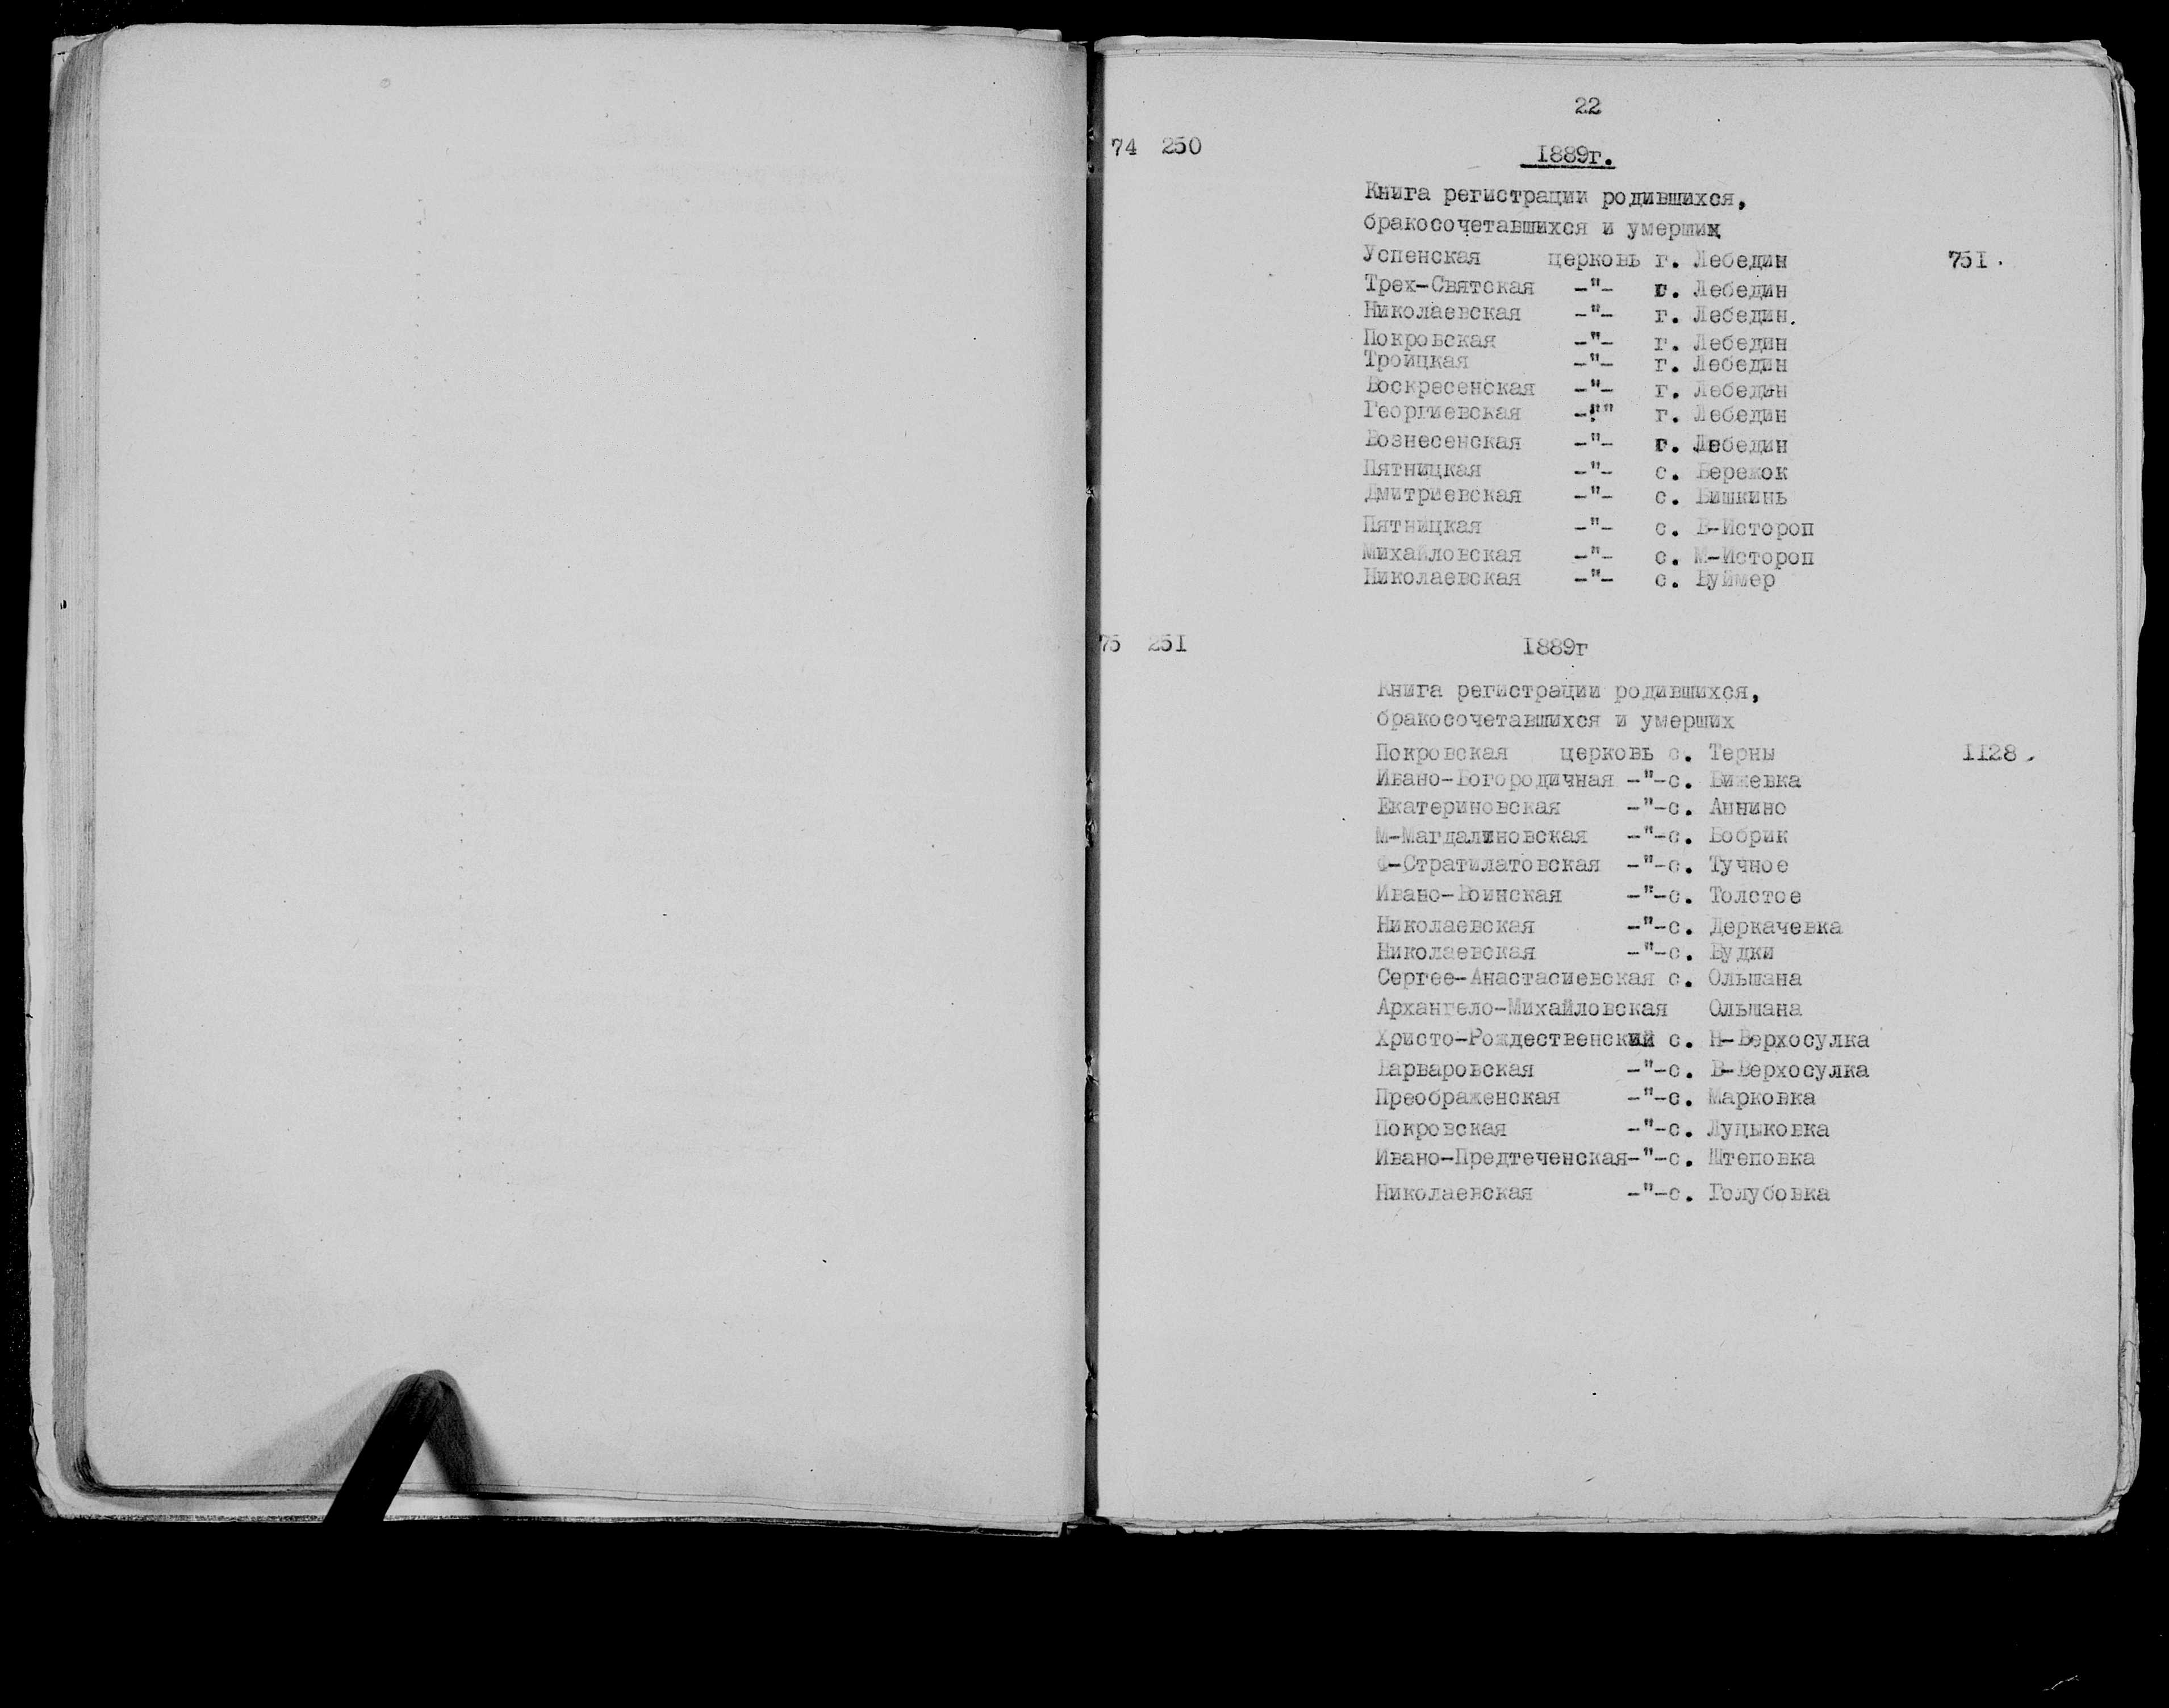 22
74 250 1889г.
Книга регистрации родившихся,
бракосочетавшихся и умерших
Успенская церковь г. Лебедин 751.
Трех-Святская -"- г. Лебедин
Николаевская -"- г. Лебедин.
Покровская -"- г. Лебедин
Троицкая -"- г. Лебедин
Воскресенская -"- г. Лебедин
Георгиевская -"" г. Лебедин
Вознесенская -"- г. Лебедин
Пятницкая -"- с. Бережок
Дмитриевская -"- с. Бишкинь
Пятницкая -"- с. Б-Истороп
Михайловская -"- с. М-Истороп
Николаевская -"- с. Буймер
75 251 1889г
Книга регистрации родившихся,
бракосочетавшихся и умерших
Покровская церковь с. Терны 1128.
Ивано-Богородичная -"-с. Бижевка
Екатериновская -"-с. Аннино
М-Магдалиновская -"-с. Бобрик
Ф-Стратилатовская -"-с. Тучное
Ивано-Воинская -"-с. Толстое
Николаевская -"-с. Деркачевка
Николаевская -"-с. Будки
Сергее-Анастасиевская с. Ольшана
Архангело-Михайловская Ольшана
Христо-Рождественский с. Н-Верхосулка
Варваровская -"-с. В-Верхосулка
Преображенская -"-с. Марковка
Покровская -"-с. Луцыковка
Ивано-Предтеченская-"-с. Штеповка
Николаевская -"-с. Голубовка